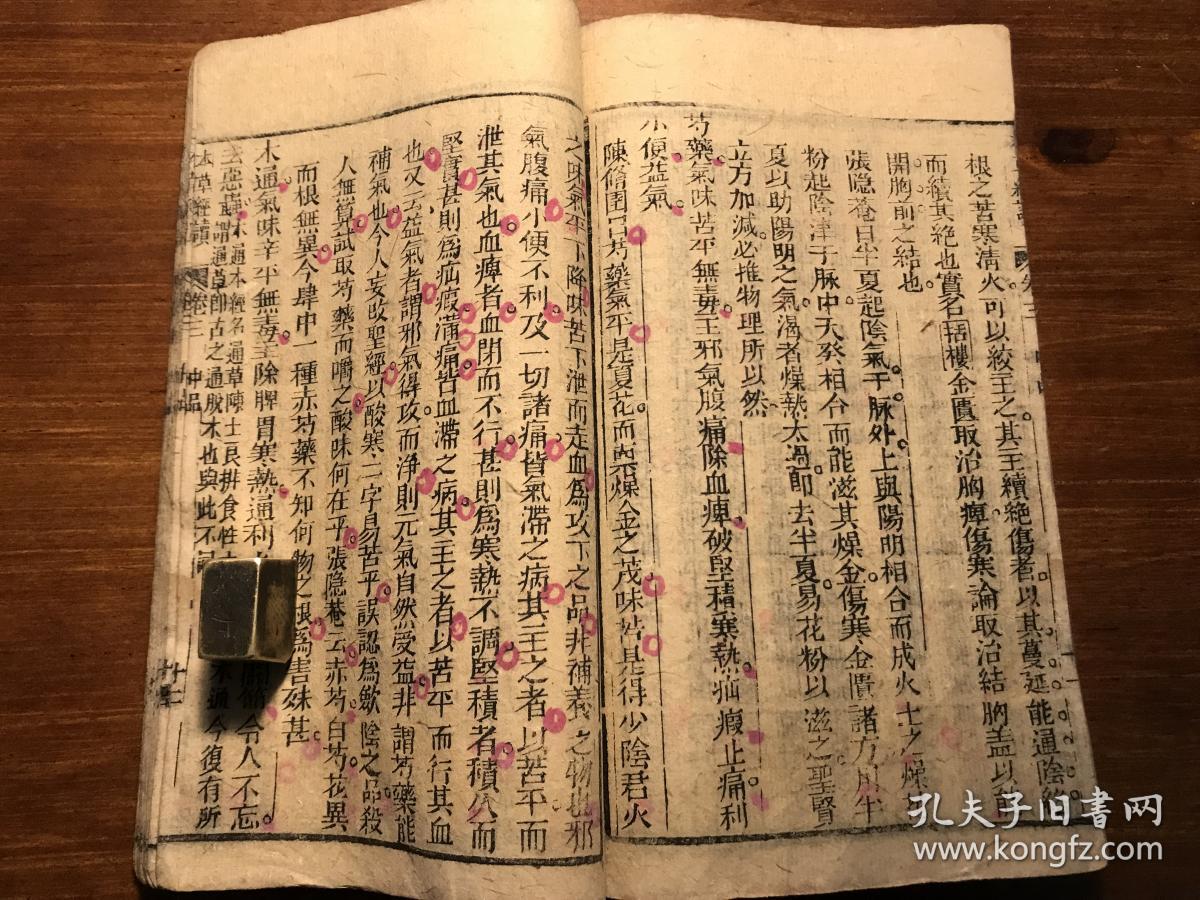 根之苦寒清火可以絞主之其主續絕傷者以其蔓延能通陰絡
而續其絕也實名栝樓金匱取治胸痺傷寒論取治結胸蓋以能
開胸前之結也
張隱菴曰半夏起陰氣于脉外上與陽明相合而成火土之燥花
粉起陰津于脉中天癸相合而能滋其燥金傷寒金匱諸方用半
夏以助陽明之氣渴者燥熱太過即去半夏易花粉以滋之聖賢
立方加減必推物理所以然
芍藥氣味苦平無毒主邪氣腹痛除血痺破堅積寒熱疝瘕止痛利
小便益氣
陳脩園曰芍藥氣平是夏花而稟燥金之茂味苦是得少陰君火
之味氣平下降味苦下泄而走血為攻下之品非補養之物也邪
氣腹痛小便不利及一切諸痛皆氣滯之病其主之者以苦平而
泄其氣也血痺者血閉而不行甚則為寒熱不調堅積者積久而
堅實甚則為疝瘕滿痛皆血滯之病其主之者以苦平而行其血
也又云益氣者謂邪氣得攻而淨則元氣自然受益非謂芍藥能
補氣也今人妄改聖經以酸寒二字易苦平誤認為斂陰之品殺
人無算試取芍藥而嚼之酸味何在乎張隱菴云赤芍白芍花異
而根無異今肆中一種赤芍藥不知何物之根為害殊甚
木通氣味辛平無毒主除脾胃寒熱通利 關節令人不忘
去惡蟲木通本經名通草陳士良撰食性
謂通草即古之通脫木也與此不同
不通今復有所
本草經讀 卷三 中品
孔夫子旧书网
www.kongfz.com